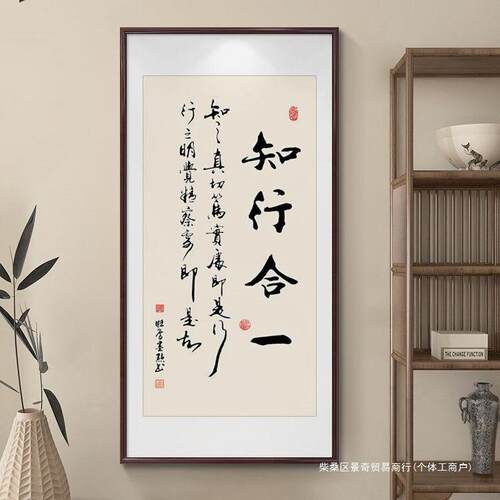 知行合一
知之真切篤實處即是行
行之明覺精察處即是知
THE CHANGE FUNCTION
柴桑区景奇贸易商行(个体工商户)